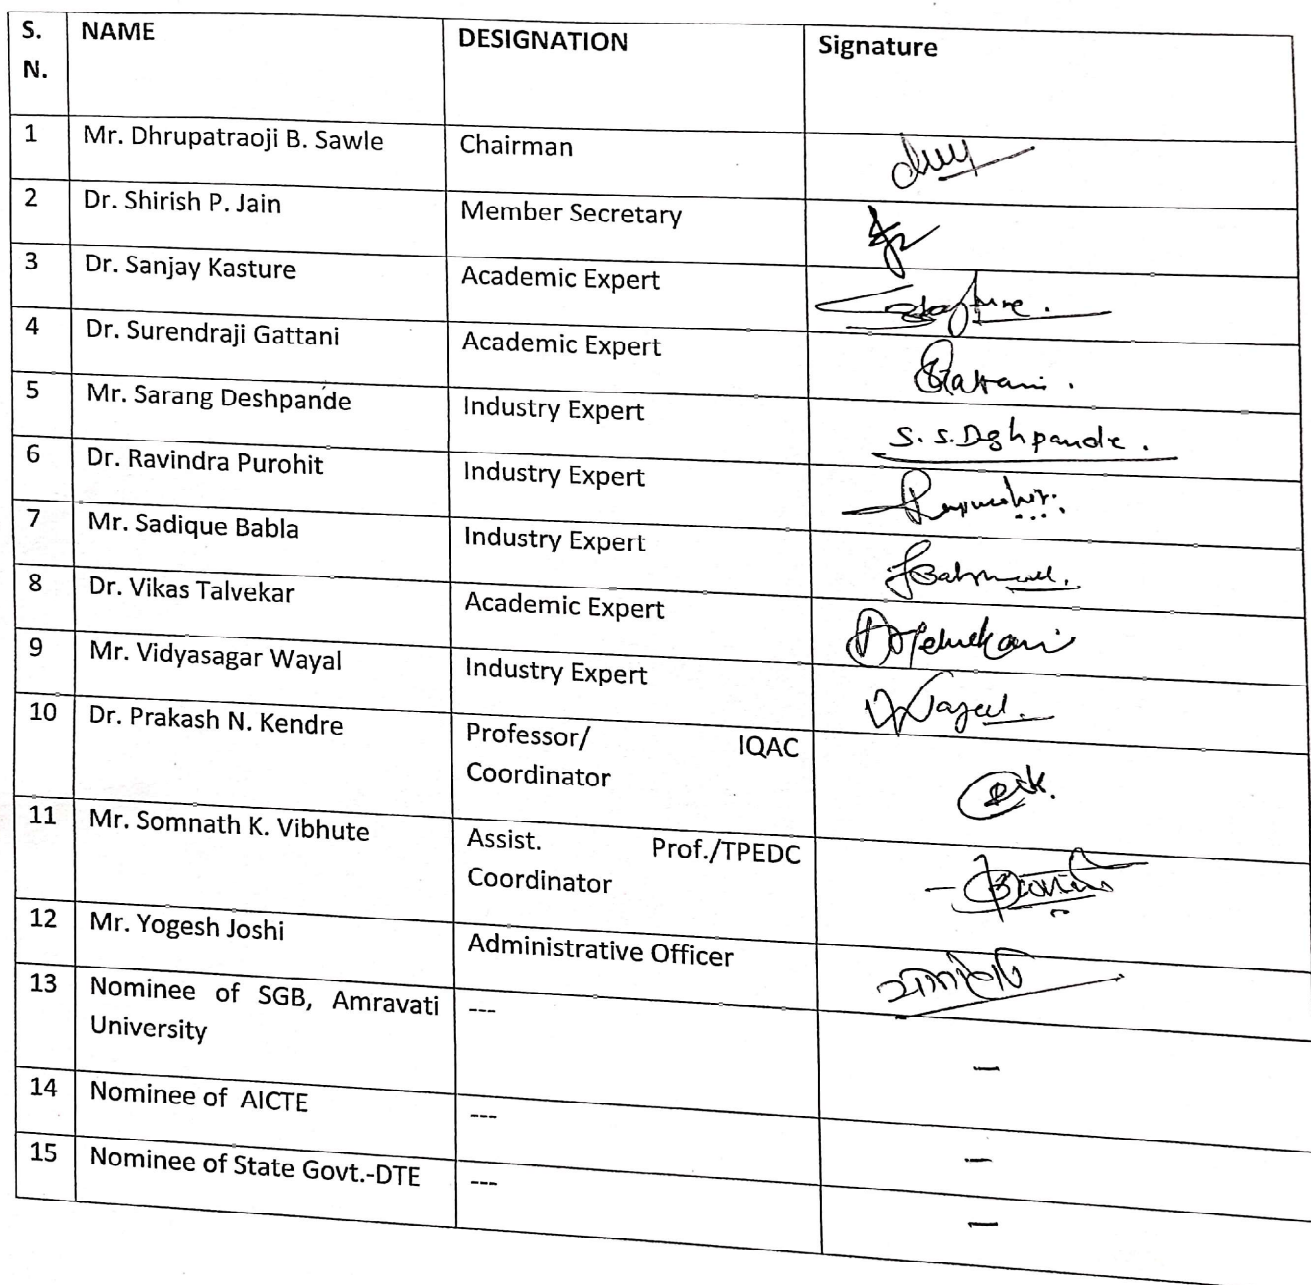 S. NAME DESIGNATION Signature
N.
1 Mr. Dhrupatraoji B. Sawle Chairman
2 Dr. Shirish P. Jain Member Secretary
3 Dr. Sanjay Kasture Academic Expert
4 Dr. Surendraji Gattani Academic Expert
5 Mr. Sarang Deshpande Industry Expert S. S. Dghpande.
6 Dr. Ravindra Purohit Industry Expert
7 Mr. Sadique Babla Industry Expert
8 Dr. Vikas Talvekar Academic Expert
9 Mr. Vidyasagar Wayal Industry Expert
10 Dr. Prakash N. Kendre Professor/ IQAC
Coordinator
11 Mr. Somnath K. Vibhute Assist. Prof./TPEDC
Coordinator
12 Mr. Yogesh Joshi Administrative Officer
13 Nominee of SGB, Amravati --- –
University
14 Nominee of AICTE --- –
15 Nominee of State Govt.-DTE --- –